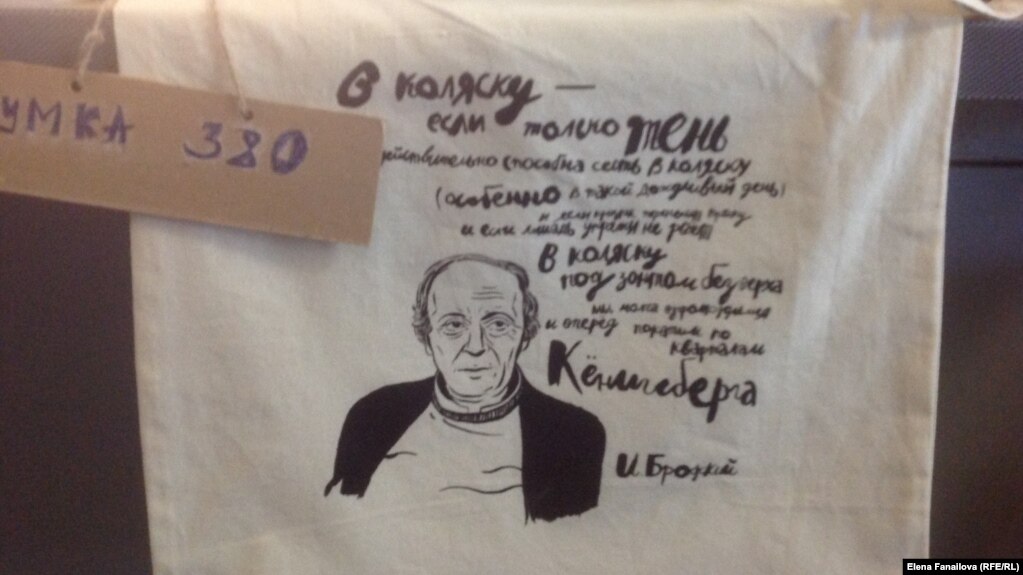 УМКА 380
В коляску —
если только тень
действительно способна сесть в коляску
(особенно в такой дождливый день)
и если
и если лошадь упряжи не рвёт
В коляску
под зонтом без верха
мы молча взгромоздимся
и вперёд покатим по
кварталам
Кёнигсберга
И. Бродский
Elena Fanailova (RFE/RL)